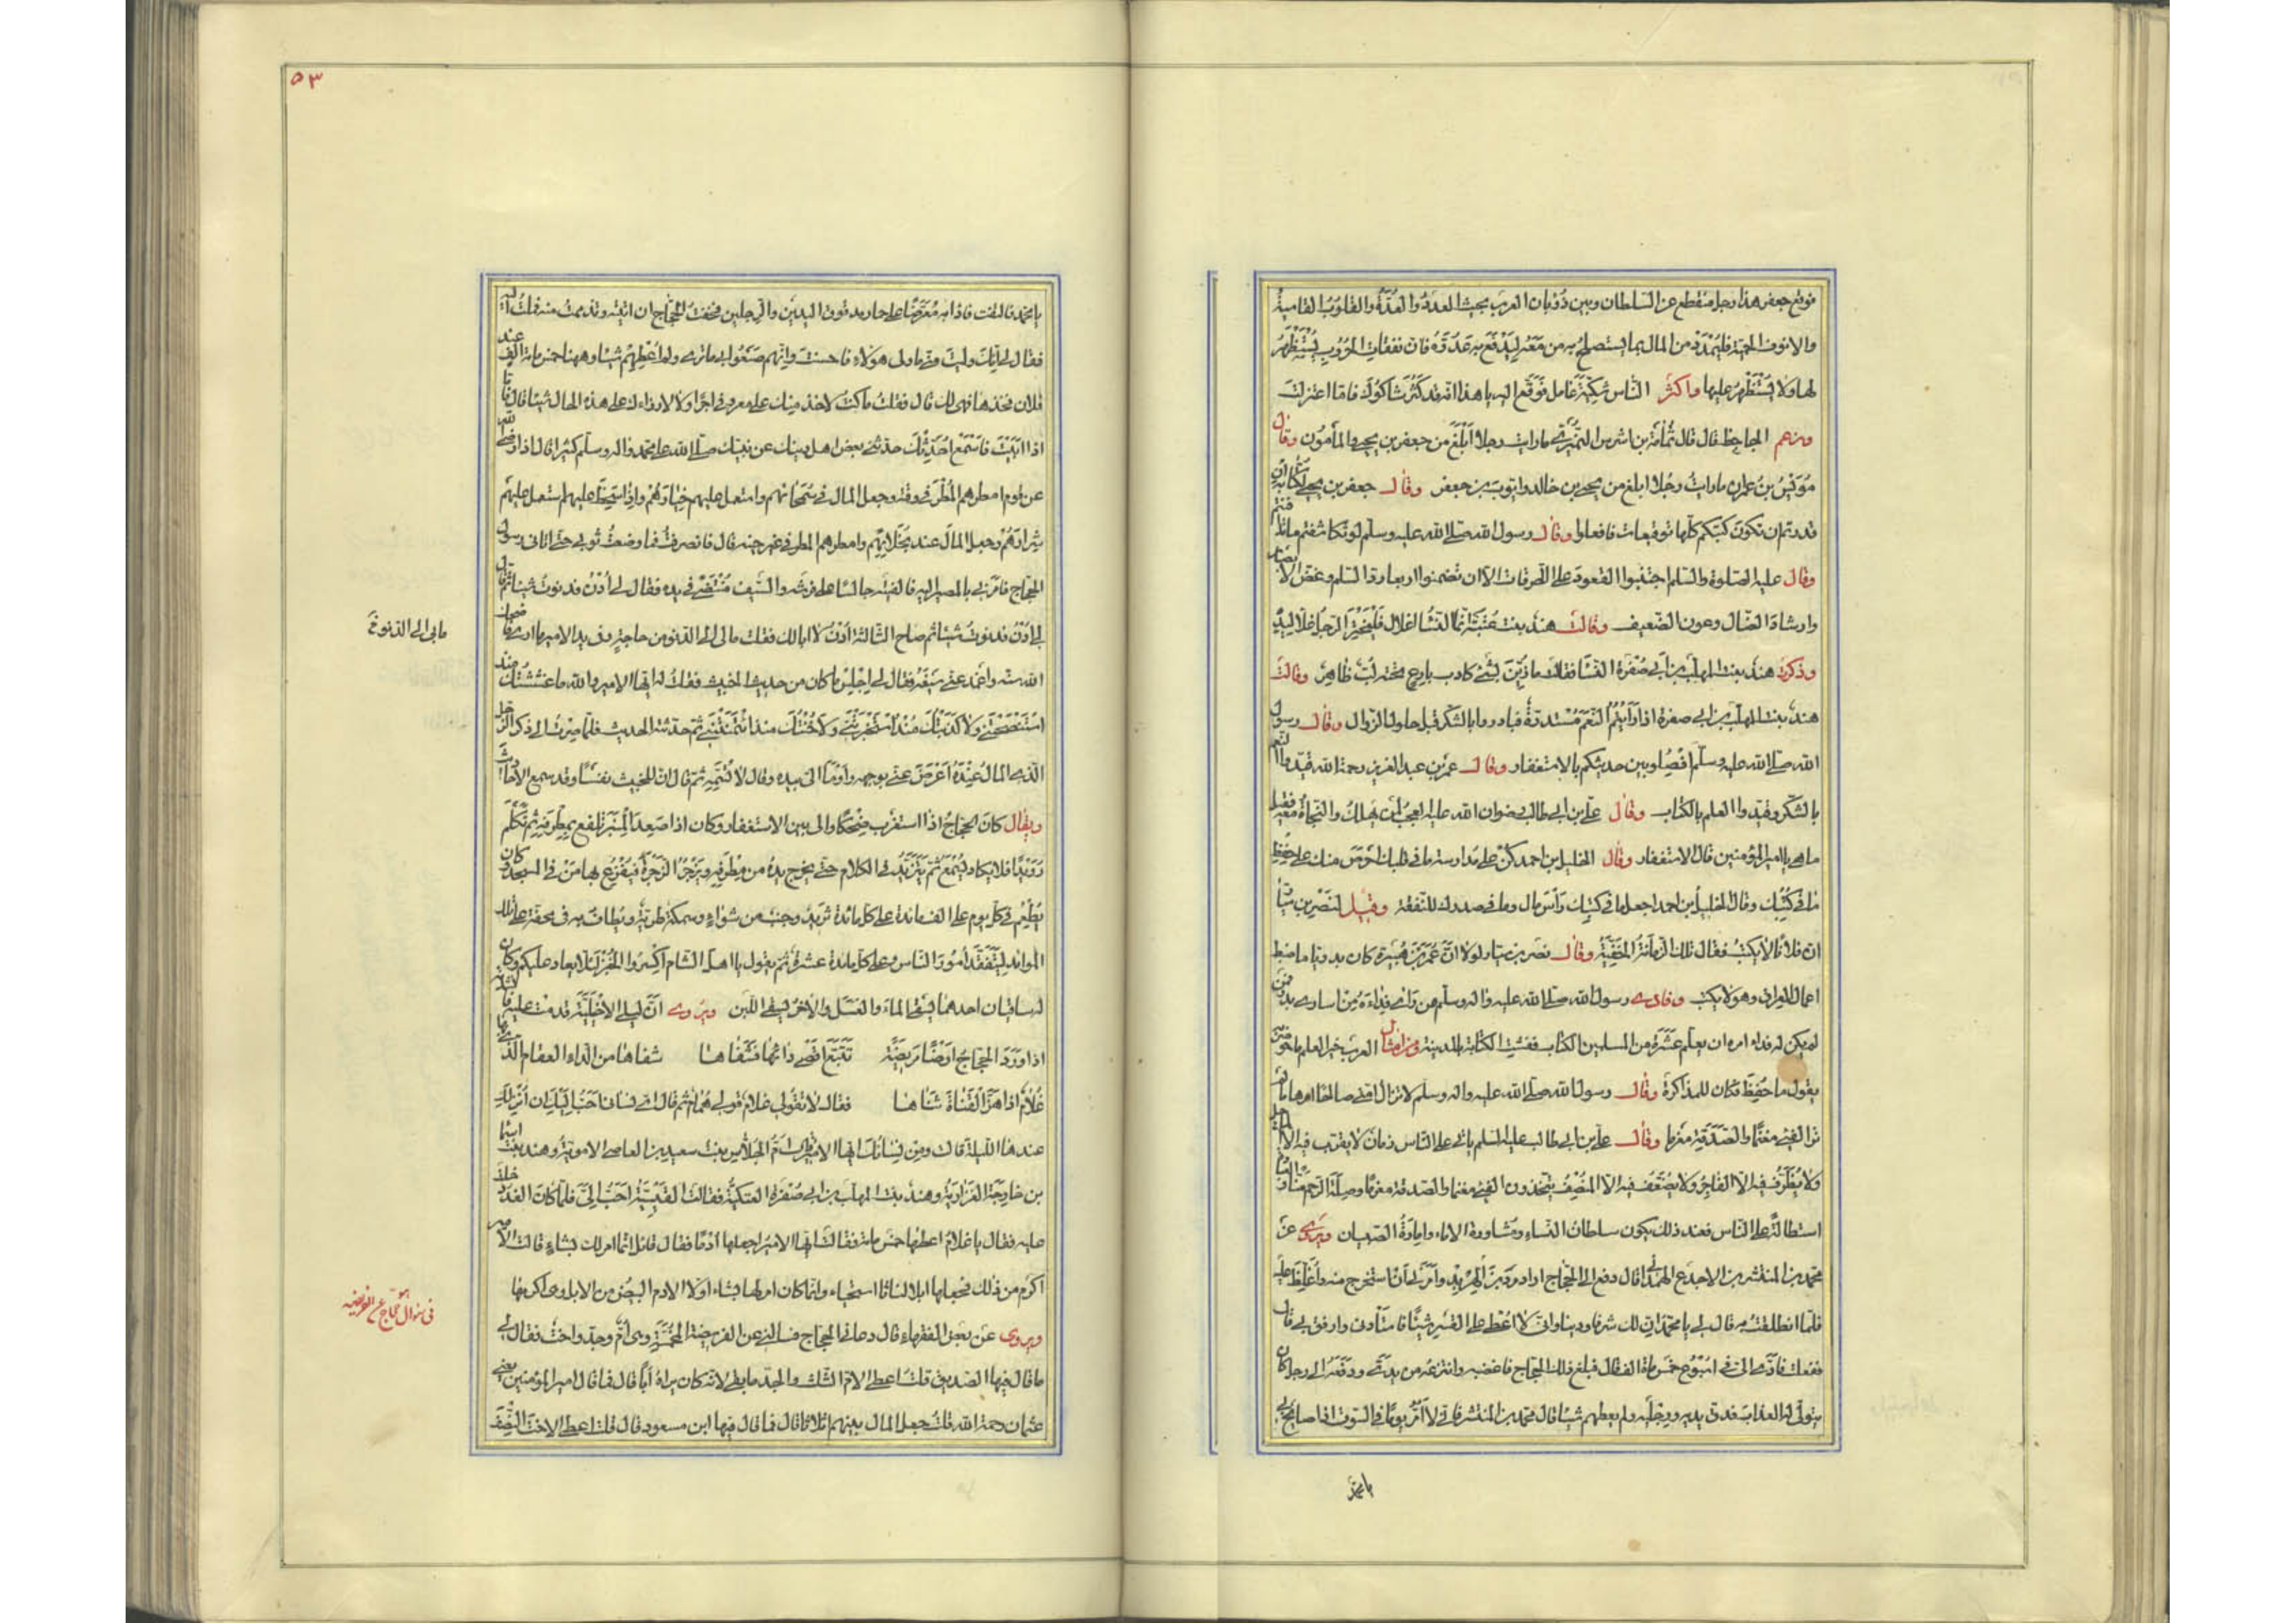 فوقع جعفر هذا رجل منقطع عن السلطان وبين ذؤبان العرب بحيث العدد والعدة والقلوب القاسية
والانوف الحمية فليمدد من المال بما يستصلح به من معه ليدفع به عدوه فان نفقات الحروب يستظهر
لها ولا يستظهر عليها واكثر الناس شكية عامل فوقع اليه يا هذا انه قد كثر شاكوك فاما اعتزلت
ومنهم الجاحظ قال قال ثمامة بن اشرس النميري ما رايت رجلا ابلغ من جعفر بن يحيى والمأمون وقال
مويس بن عمران ما رايت رجلا ابلغ من يحيى بن خالد وايوب بن جعفر وقال جعفر بن يحيى لكتابه ان
قدرتم ان تكون كتبكم كلها توقيعات فافعلوا وقال رسول الله صلى الله عليه وسلم لو تكاشفتم ما تدافنتم
وقال عليه الصلوة والسلم اجتنبوا القعود على الطرقات الا ان تضمنوا اربعا رد السلم وغض الابصار
وارشاد الضال وعون الضعيف وقالت هند بنت عتبة انما النسا اغلال فليتخير الرجل غلا ليده
وذكرت هند بنت المهلب بن ابى صفرة النسا فقالت ما زين بشئ كادب بارع تحته لب ظاهر وقالت
هند بنت المهلب بن ابى صفرة اذا رايتم النعم مستدرة فبادروا بالشكر قبل حلول الزوال وقال رسول
الله صلى الله عليه وسلم افصلوا بين حديثكم بالاستغفار وقال عمر بن عبد العزيز رحمة الله قيدوا النعم
بالشكر وقيدوا العلم بالكتاب وقال على بن ابى طالب رضوان الله عليه العجب لمن يهلك والنجاة معه فقيل
ما هى يا امير المؤمنين قال الاستغفار وقال الخليل بن احمد كن على مدارسة ما فى قلبك احرص منك على حفظ
ما فى كتبك وقال الخليل بن احمد اجعل ما فى كتبك راس مال وما فى صدرك للنفقة وقيل لنصر بن سيار
ان فلانا لا يكتب فقال تلك الزمانة الخفية وقال نصر بن سيار لولا ان عمر بن هبيرة كان بدويا ما ضبط
اعمال العراق وهو لا يكتب وفادى رسول الله صلى الله عليه واله وسلم من راى فداءه من اسارى بدر فمن
لم يكن له فداء امره ان يعلم عشرة من المسلمين الكتاب ففشت الكتابة بالمدينة ومن امثال العرب خير العلم ما حوضر به
يقول ما حفظ فكان للمذاكرة وقال رسول الله صلى الله عليه واله وسلم لا تزال امتى صالحا امرها ما لم
تر الفئ مغنما والصدقة مغرما وقال على بن ابى طالب عليه السلم ياتى على الناس زمان لا يقرب فيه الا الماحل
ولا يظرف فيه الا الفاجر ولا يضعف فيه الا المنصف يتخذون الفئ مغنما والصدقة مغرما وصلة الرحم منا والعبادة
استطالة على الناس فعند ذلك يكون سلطان النساء ومشاورة الاماء وامارة الصبيان ويروى عن
محمد بن المنتشر بن الاجدع الهمدانى قال دفع الى الحجاج ازادمرد بن الهربذ وامرنى ان استخرج منه واغلظ عليه
فلما انطلقت به قال لى يا محمد ان لك شرفا ودينا وانى لا اعطى على القسر شيئا فاستأدنى وارفق بى قال
ففعلت فادى الى فى اسبوع خمس مائة الف قال فبلغ ذلك الحجاج فاغضبه وانتزعه من يدى ودفعه الى رجل كان
يتولى له العذاب فدق يديه ورجليه ولم يعطهم شيئا قال محمد بن المنتشر فانى لامر يوما فى السوق اذا صايح بى
يا محمد
٥٣
يا محمد فالتفت فاذا به معرضا على حمار مدقوق اليدين والرجلين فخفت الحجاج ان اتيته وتذممت منه فملت اليه
فقال لى انك وليت منى ما ولى هولاء فاحسنت وانهم صنعوا بى ما ترى ولم اعطهم شيئا وههنا خمس مائة الف عند
فلان فخذها فهى لك قال فقلت ما كنت لاخذ منك على معروفى اجرا ولا لارزاءك على هذه الحال شيئا قال فاما
اذا ابيت فاستمع احدثك حدثنى بعض اهل دينك عن نبيك صلى الله على محمد واله وسلم كثيرا قال اذا رضى الله
عن قوم امطرهم المطر فى وقته وجعل المال فى سمحائهم واستعمل عليهم خيارهم واذا سخط عليهم استعمل عليهم
شرارهم وجعل المال عند بخلائهم وامطرهم المطر فى غير حينه قال فانصرفت فما وضعت ثوبى حتى اتانى رسول
الحجاج فامرنى بالمصير اليه فالفيته جالسا على فرشه والسيف منتضى فى يده فقال لى ادن فدنوت شيئا ثم قال
لى ادن فدنوت شيئا ثم صاح الثالثة ادن لا ابا لك فقلت ما بى الى الدنو من حاجة وفى يد الامير ما ارى فاضحك
الله سنه واغمد عنى سيفه فقال لى اجلس ما كان من حديث الخبيث فقلت له ايها الامير والله ما غششتك منذ
استنصحتنى ولا كذبتك منذ استخبرتنى ولا خنتك منذ ائتمنتنى ثم حدثته الحديث فلما صرت الى ذكر الرجل
الذى المال عنده اعرض عنى بوجهه واومأ الى بيده وقال لا تسمه ثم قال ان للخبيث نفسا وقد سمع الاحاديث
ويقال كان الحجاج اذا استغرب ضحكا والى بين الاستغفار وكان اذا صعد المنبر تلفع بمطرفه ثم تكلم
رويدا فلا يكاد يسمع ثم يتزيد فى الكلام حتى يخرج يده من مطرفه ويزجر الزجرة فيفزع بها من فى المسجد وكان
يطعم فى كل يوم على الف مائدة على كل مائدة ثريد وجنب من شواء وسمكة طرية ويطاف به فى محفة على تلك
الموائد ليتفقد امور الناس وعلى كل مائدة عشرة ثم يقول يا اهل الشام اكسروا الخبز لئلا يعاد عليكم وكان
له ساقيان احدهما يسقى الماء والعسل والاخر يسقى اللبن ويروى ان ليلى الاخيلية قدمت عليه فانشدته
اذا ورد الحجاج ارضا مريضة تتبع اقصى دائها فشفاها شفاها من الداء العقام الذى بها
غلام اذا هز القناة ثناها فقال لا تقولى غلام قولى همام ثم قال اى نسائى احب اليك ان انزلك
عندها الليلة قالت ومن نساؤك ايها الامير قال ام الجلاس بنت سعيد بن العاصى الاموية وهند بنت اسماء
بن خارجة الفزارية وهند بنت المهلب بن ابى صفرة العتكية فقالت القيسية احب الى فلما كان الغد دخلت
عليه فقال يا غلام اعطها خمس مائة فقالت ايها الامير اجعلها ادما فقال قائل انما امر لك بشاء قالت الامير
اكرم من ذلك فجعلها ابلا اناثا استحياء وانما كان امر لها بشاء اولا الادم البيض من الابل وهى اكرمها
ويروى عن بعض الفقهاء قال دعانى الحجاج فسالنى عن الفريضة المخمسة وهى ام وجد واخت فقال لى
ما قال فيها الصديق قلت اعطى الام الثلث والجد ما بقى لانه كان يراه ابا قال فما قال امير المؤمنين يعنى
عثمان رحمة الله قلت جعل المال بينهم اثلاثا قال فما قال فيها ابن مسعود قال قلت اعطى الاخت النصف
ما بى الى الدنو
فى سوال حجاج عن الفريضه